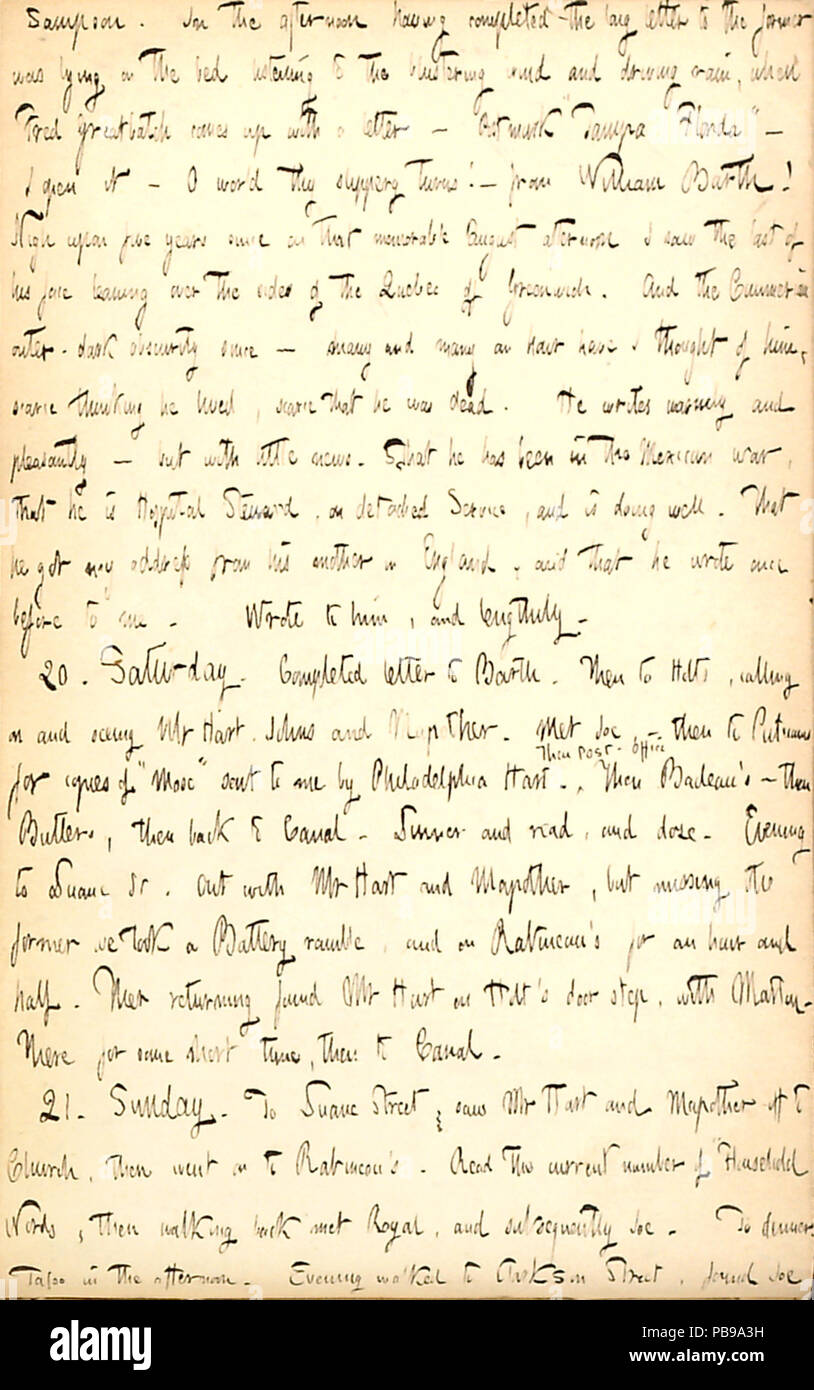 Sampson. In the afternoon having completed the long letter to the former
was lying on the bed listening to the blustering wind and driving rain, when
Fred Greatbatch comes up with a letter — Postmark "Tampa Florida" —
I open it — O world thy slippery turns! — from William Barth!
Nigh upon five years since on that memorable August afternoon I saw the last of
his face leaning over the sides of the Quebec of Greenwich. And the Cimmerian
outer-dark obscurity since — many and many an hour have I thought of him,
scarce thinking he lived, scarce that he was dead. He writes warmly and
pleasantly — but with little news. That he has been in the Mexican war,
that he is Hospital Steward, on detached Service, and is doing well. That
he got my address from his mother in England, and that he wrote once
before to me. Wrote to him, and lengthily.
20. Saturday. Completed letter to Barth. Then to Holts, calling
on and seeing Mr Hart, Johns and Mapother. Met Joe, then to Putnams
Then Post-Office
for copies of "Mose" sent to me by Philadelphia Hart. Then Badeau's — then
Butlers, then back to Canal. Dinner and read, and dose. Evening
to Duane St. Out with Mr Hart and Mapother, but missing the
former we took a Battery ramble, and on Rabineau's for an hour and
half. Then returning found Mr Hart on Holt's door step, with Matton.
There for some short time, then to Canal.
21. Sunday. To Duane Street, saw Mr Hart and Mapother off to
Church, then went on to Rabineau's. Read the current number of "Household
Words, then walking back met Royal, and subsequently Joe. To dinner
in the afternoon. Evening walked to Clarkson Street, found Joe
alamy
Image ID: PB9A3H
www.alamy.com